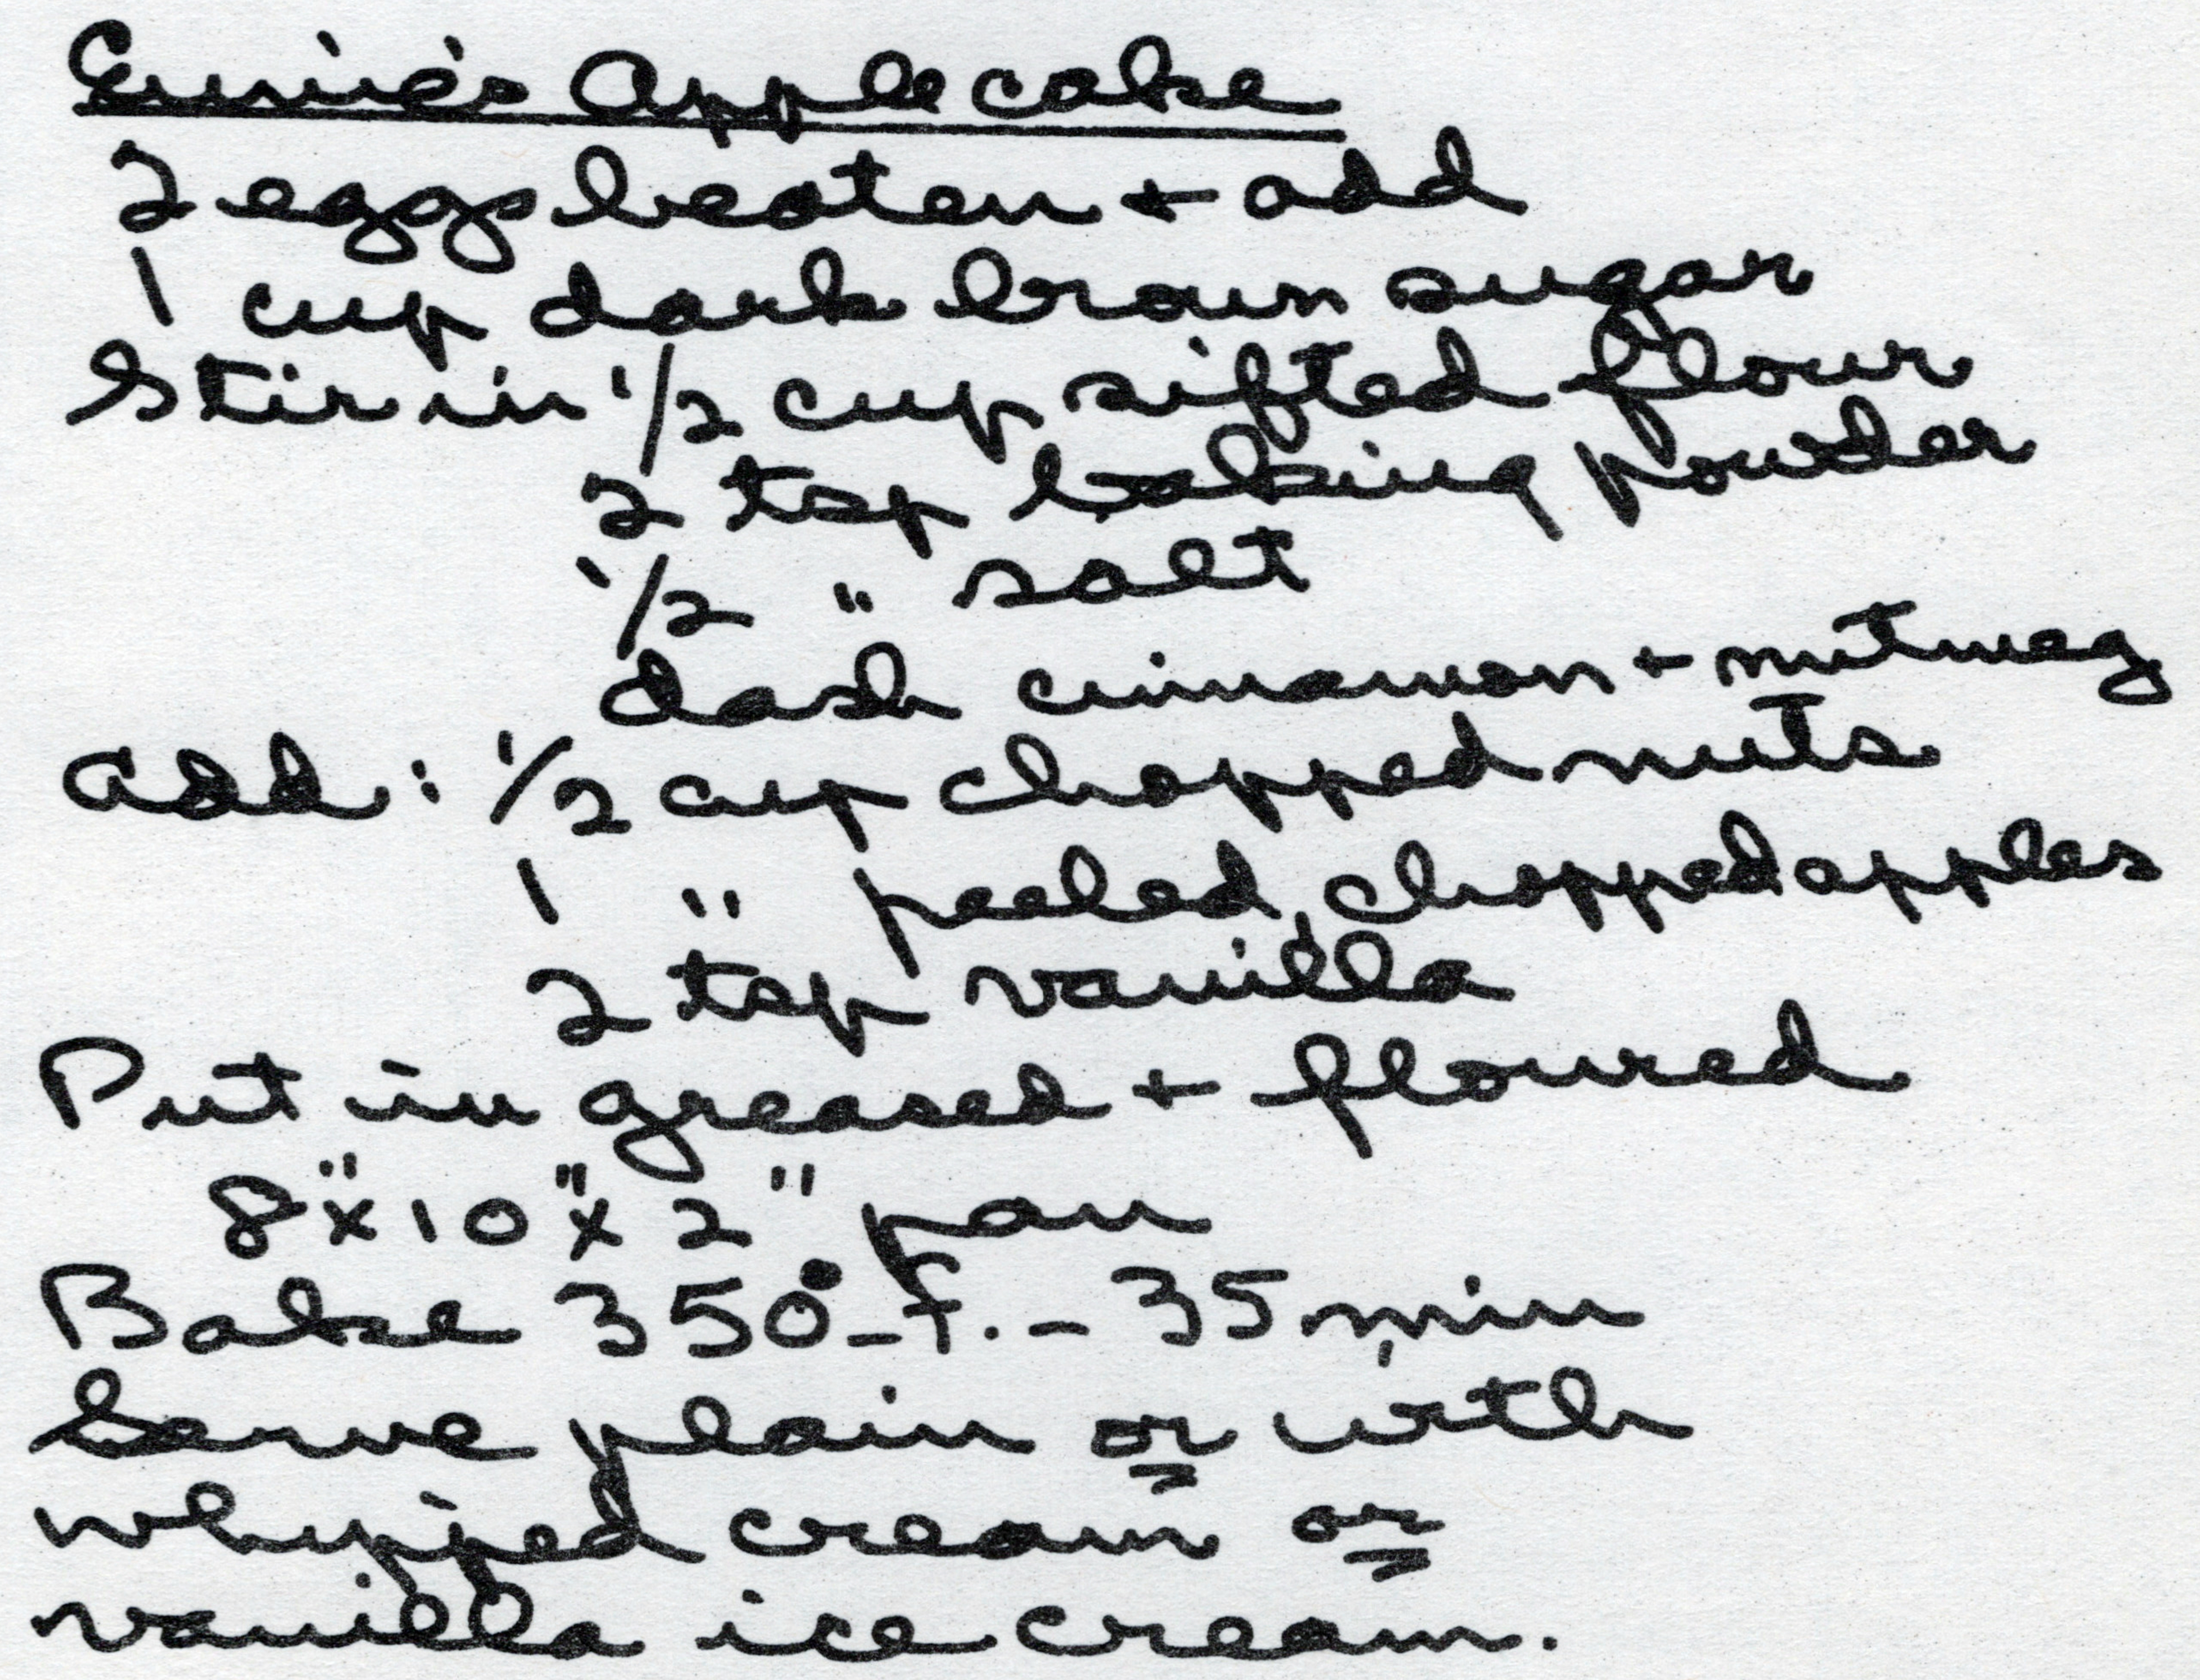 Eunie's Applecake
2 eggs beaten + add
1 cup dark brown sugar
Stir in 1/2 cup sifted flour
2 tsp baking powder
1/2 " salt
dash cinnamon + nutmeg
Add: 1/2 cup chopped nuts
1 " peeled, chopped apples
2 tsp vanilla
Put in greased + floured
8" x 10" x 2" pan
Bake 350° F. - 35 min
Serve plain or with
whipped cream or
vanilla ice cream.